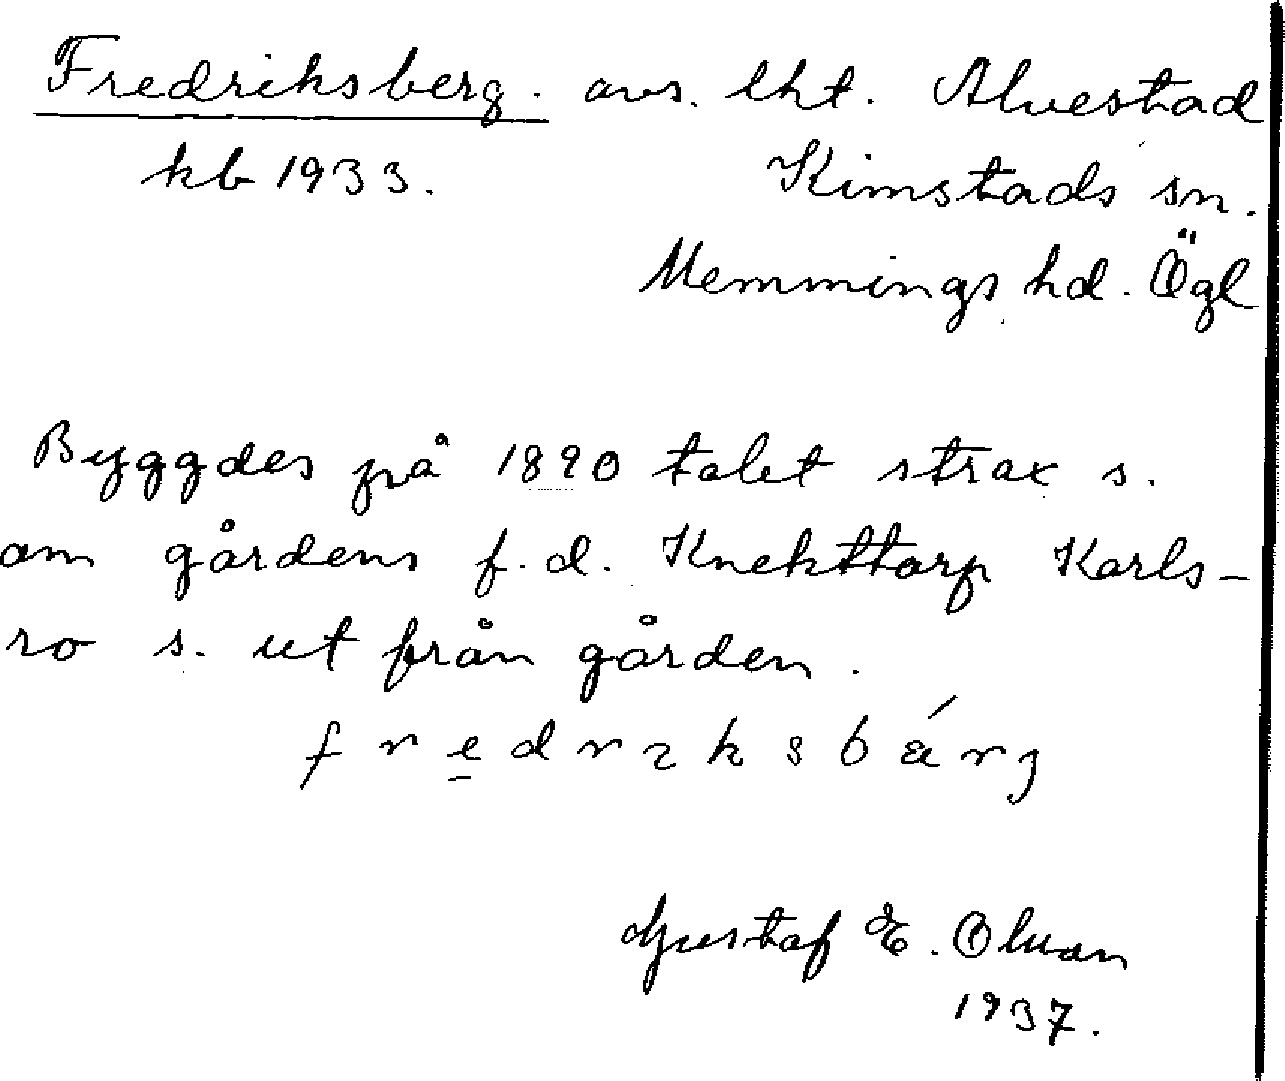 Fredriksberg. avs. lht. Alvestad
kb 1933. Kimstads sn.
Memmings hd. Ögl
Byggdes på 1890 talet strax s.
om gårdens f.d. Knekttorp Karls-
ro s. ut från gården.
fredrıksbärj
Gustaf E. Olson
1937.